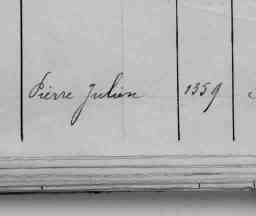 Pierre Julien 1359